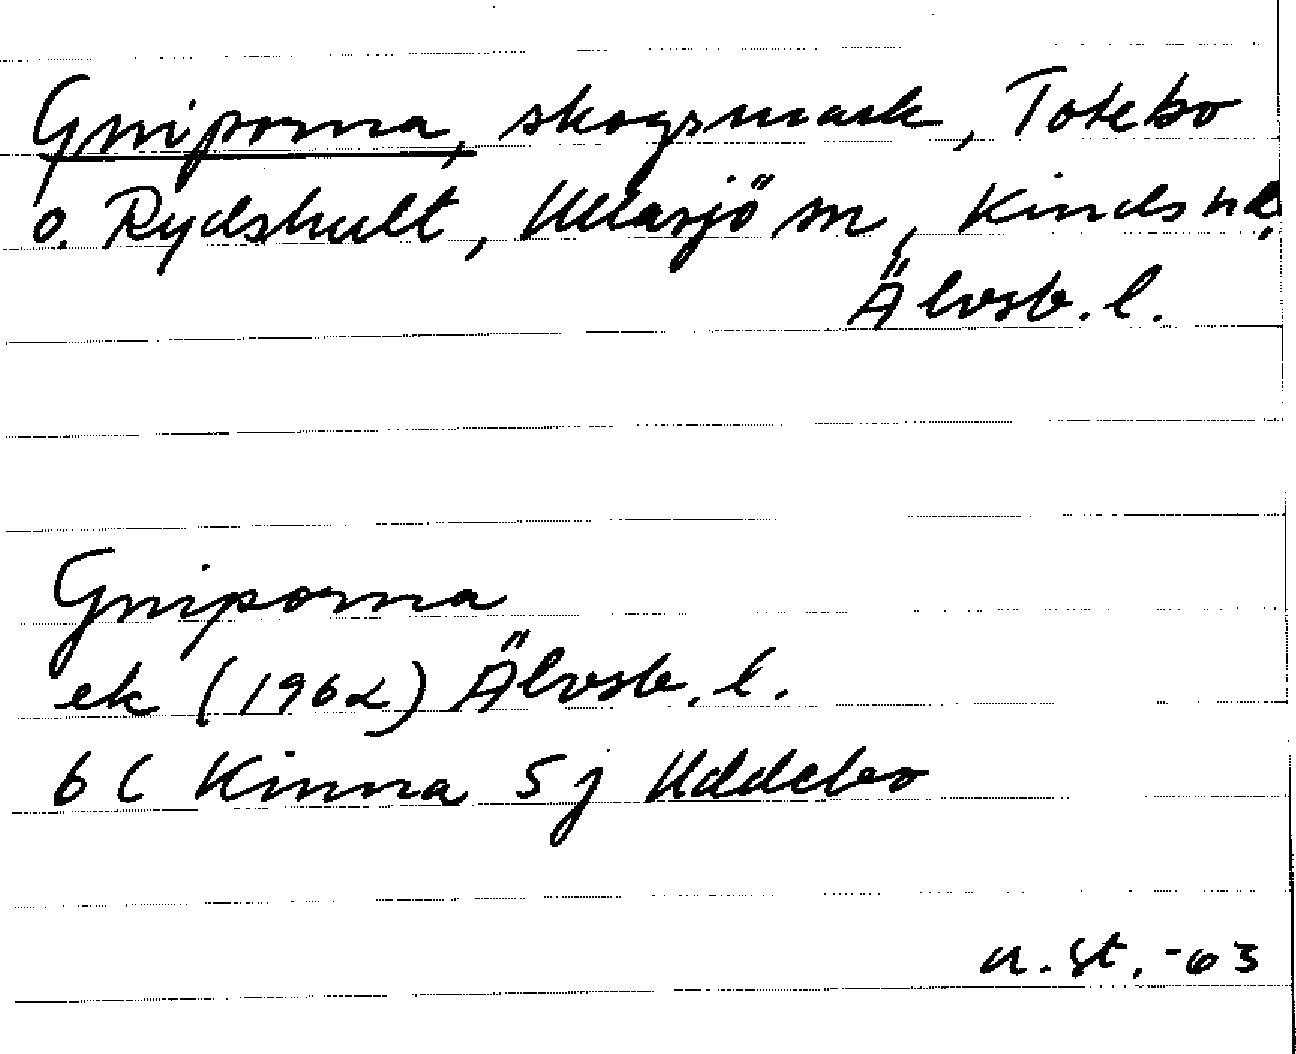 Gniporna, skogsmark, Totebo
o. Rydshult, Ullasjö sn, Kinds hd,
Älvsb. l.
Gniporna
ek (1962) Älvsb. l.
6 C Kinna 5 j Uddebo
a. st. -63